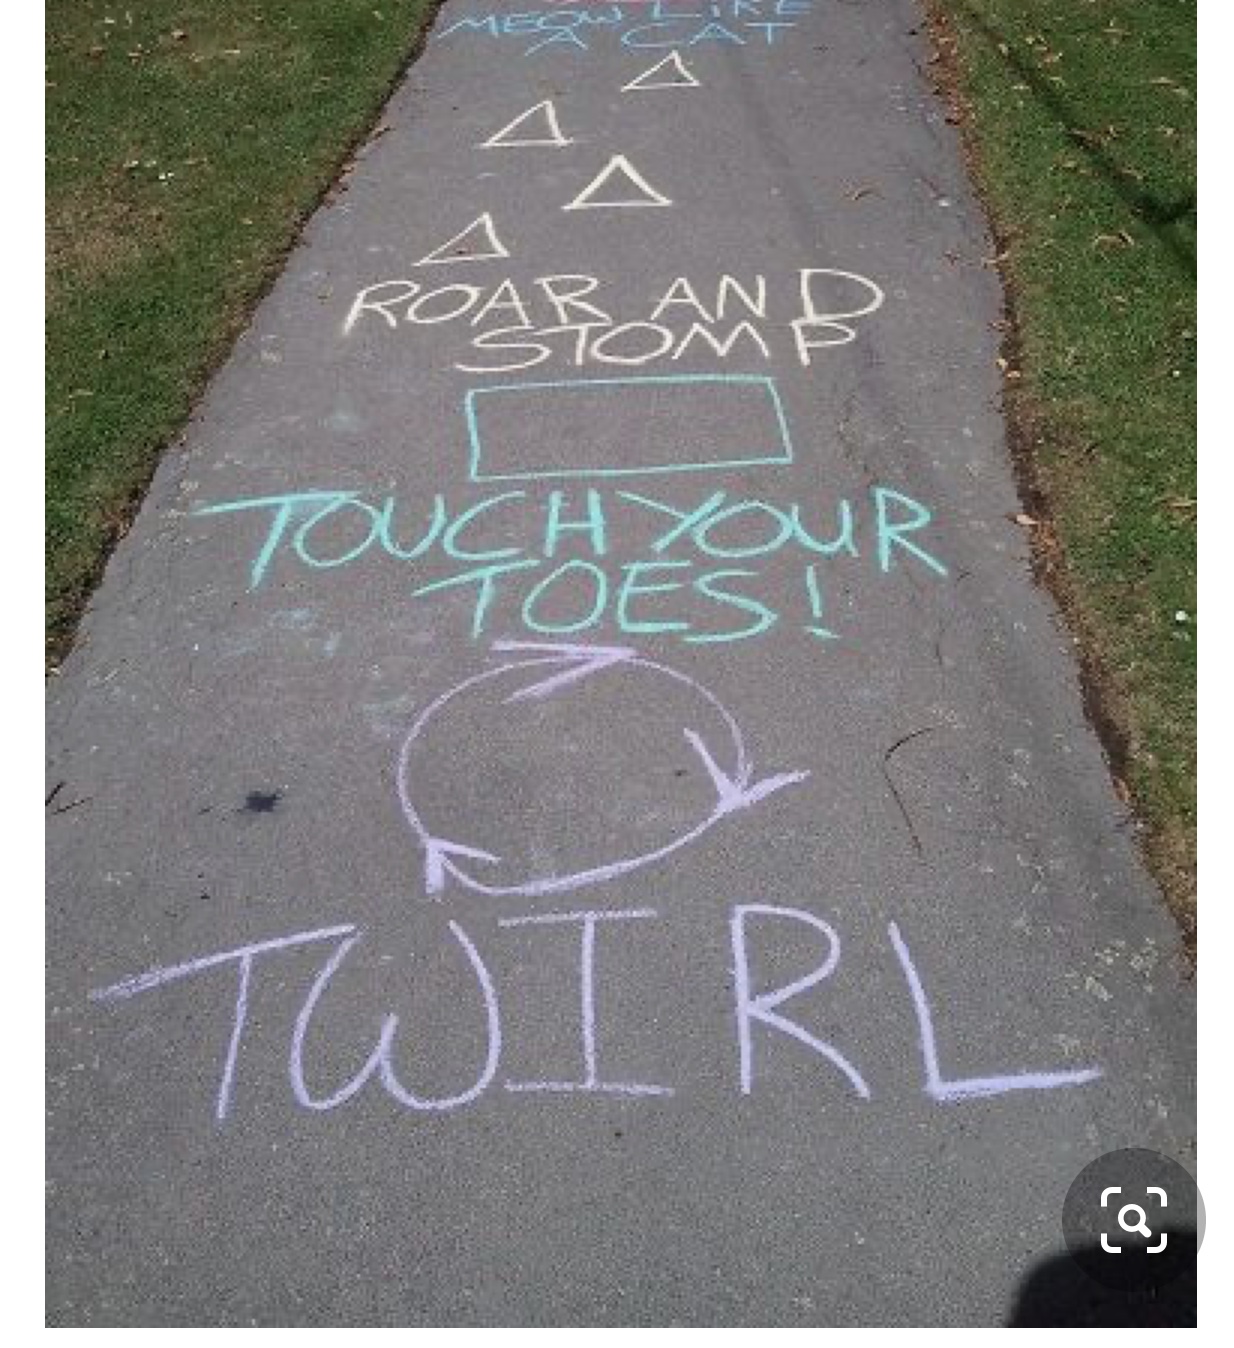 MEOW LIKE
A CAT
ROAR AND
STOMP
TOUCH YOUR
TOES!
TWIRL